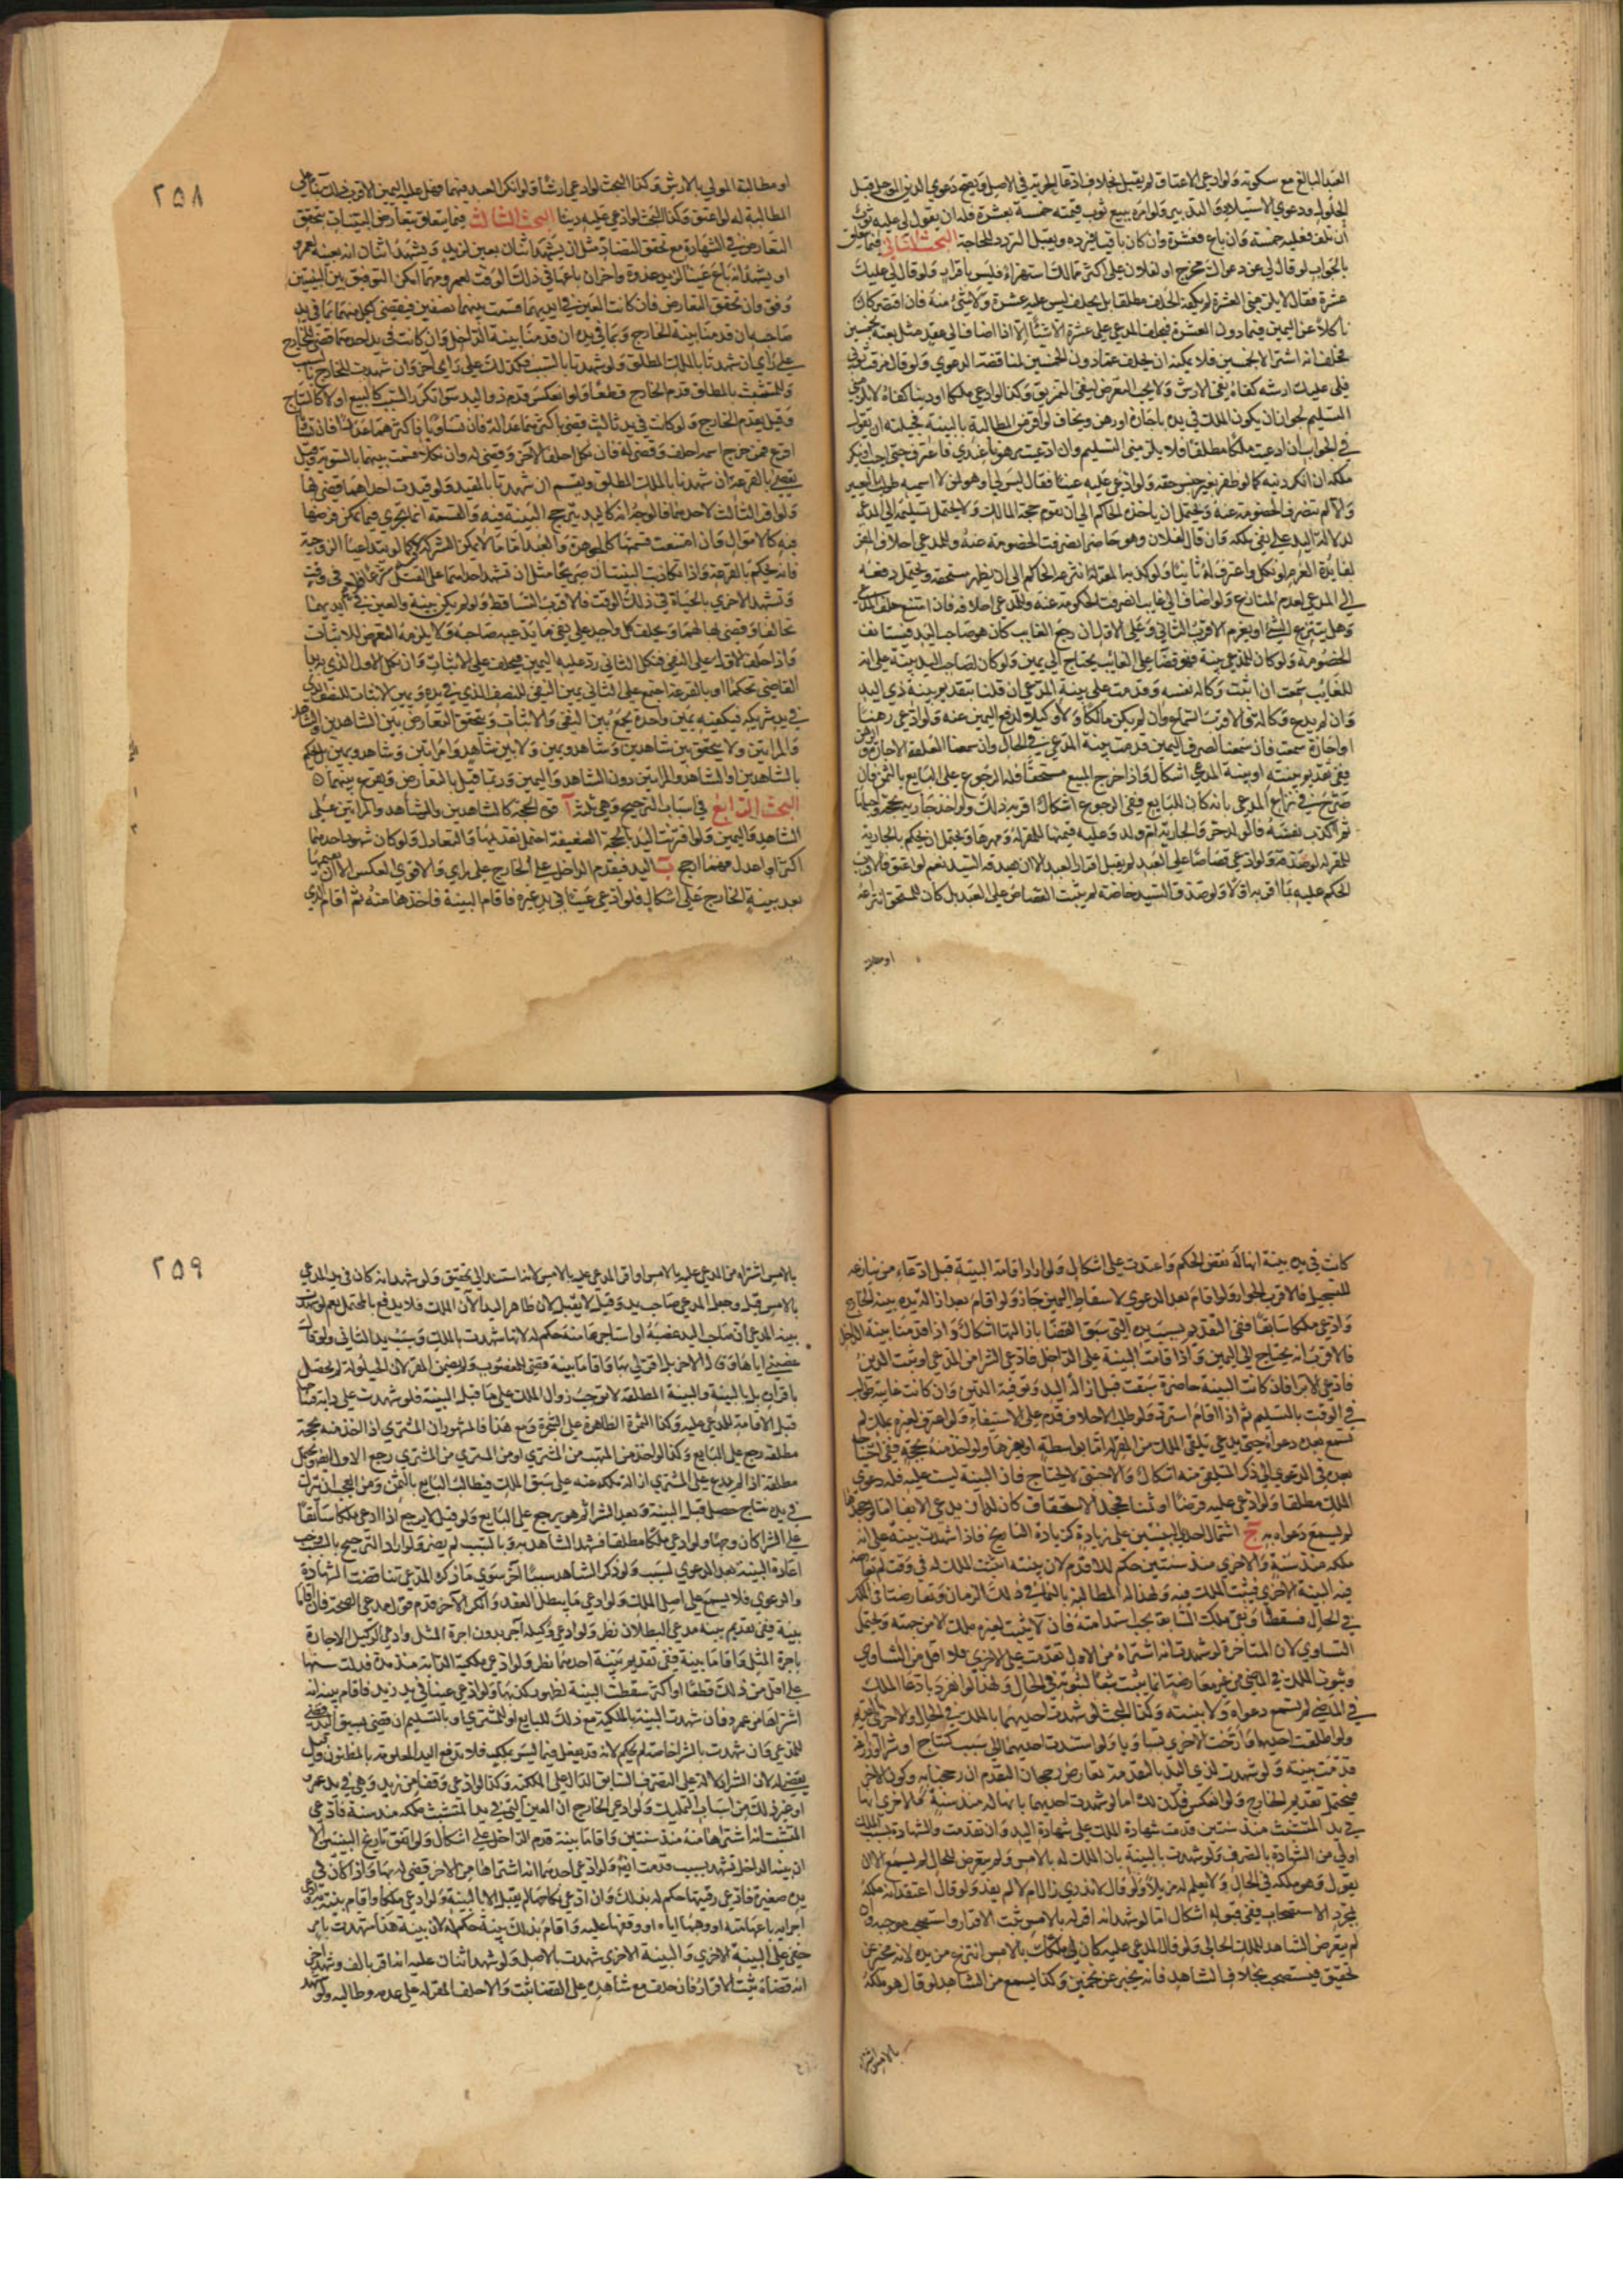 العبد البالغ مع سكوته ولو ادعى الاعتاق لم يقبل بخلاف ادعاء الحرية في الاصل ويصح دعوى الدين المؤجل قبل
الحلول ودعوى الاستيلاد والتدبير ولو امره ببيع ثوب قيمته خمسة بعشرة فله ان يقول لي عليه ثوب
ان تلف فعليه خمسة وان باع فعشرة وان كان باقيا فرده ويقبل التردد للحاجة البحث الثاني فيما يتعلق
بالجواب لو قال لي عن دعواك مخرج او لفلان علي اكثر مما لك استهزاء فليس باقرار ولو قال لي عليك
عشرة فقال لا يلزمني العشرة لم يكفه الحلف مطلقا بل يحلف ليس عليه عشرة ولا شيء منه فان اقتصر كان
ناكلا عن اليمين فيما دون العشرة فيحلف المدعي على عشرة الا شيئا الا اذا اضاف الى عقد مثل بعته بخمسين
فحلف انه اشتراه بخمسين فلا يمكنه ان يحلف
التسليم لجواز ان يكون الملك في يده باجارة او رهن ويخاف لو اقر من المطالبة بالبينة فحيلته ان يقول
في الجواب ان ادعيت ملكا مطلقا فلا يلزمني التسليم وان ادعيت مرهونا عندي فاذكره حتى اجيب
ولو ادعى عليه عينا فقال ليس لي او هو لمن لا اسميه طولب بالتعيين
والا لم تنصرف الخصومة عنه ويحتمل ان ياخذه الحاكم الى ان تقوم حجة المالك ولا يحتمل تسليمه الى المدعي
لدلالة اليد على نفي ملكه وان قال لفلان وهو حاضر انصرفت الخصومة عنه وللمدعي احلاف المقر
لفائدة الغرم لو نكل او اعترف له ثانيا ولو كذبه المقر له انتزعه الحاكم الى ان يظهر مستحقه ويحتمل دفعه
الى المدعي لعدم المنازع ولو اضاف الى غائب انصرفت الحكومة عنه وللمدعي احلافه فان امتنع حلف المدعي
وهل ينتزع الشيء او يغرم الاقرب الثاني وعلى الاول ان رجع الغائب كان هو صاحب اليد فيستانف
الخصومة ولو كان للمدعي بينة فهو قضاء على الغائب يحتاج الى يمين ولو كان لصاحب اليد بينة على انه
للغائب سمعت ان اثبت وكالة نفسه وقدمت على بينة المدعي ان قلنا بتقديم بينة ذي اليد
وان لم يدع وكالة فالاقرب السماع وان لم يكن مالكا ولا وكيلا لدفع اليمين عنه ولو ادعى رهنا
او اجارة سمعت فان سمعنا لصرف اليمين قدمت بينة المدعي في الحال وان سمعنا لعلقة الاجارة والرهن
ففي تقديم بينته او بينة المدعي اشكال واذا خرج المبيع مستحقا فله الرجوع على البايع بالثمن فان
صرح في نزاع المدعي بانه كان للبايع ففي الرجوع اشكال اقربه ذلك ولو اخذ جارية بحجة واحبلها
ثم اكذب نفسه فالولد حر والجارية ام ولد وعليه قيمتها للمقر له ومهرها ويحتمل ان يحكم بالجارية
للمقر له لو صدقته ولو ادعى قصاصا على العبد لم يقبل اقرار العبد الا ان يصدقه السيد نعم لو اعتق فالاقرب
الحكم عليه بما اقر به اولا ولو صدق السيد خاصة لم يثبت القصاص على العبد بل كان للمستحق انتزاعه
او مطالبة
٢٥٨
او مطالبة المولى بالارش وكذا البحث لو ادعى ارشا
المطالبة له لو اعتق وكذا البحث لو ادعى عليه دينا البحث الثالث فيما يتعلق بتعارض البينات يتحقق
التعارض في الشهادة مع تحقق التضاد مثل ان يشهد اثنان بعين لزيد ويشهد اثنان انه بعينه لعمرو
او يشهد انه باع عينا لزيد غدوة واخران باعها في ذلك الوقت لعمرو ومهما امكن التوفيق بين البينتين
وفق وان تحقق التعارض فان كانت العين في ايديهما قسمت بينهما نصفين فيقضى لكل منهما بما في يد
صاحبه ان قدمنا بينة الخارج وبما في يده ان قدمنا بينة الداخل وان كانت في يد احدهما قضي للخارج
على راي ان شهدتا بالملك المطلق ولو شهدتا بالسبب فكذلك على راي اخر وان شهدت للخارج بالسبب
وللمتشبث بالمطلق قدم الخارج قطعا ولو انعكس قدم ذو اليد سواء تكرر السبب كالبيع او لا كالنتاج
وقيل يقدم الخارج ولو كانت في يد ثالث قضي باكثرهما عدالة فان تساويا فاكثرهما عددا فان تساويا
اقرع فمن خرج اسمه احلف وقضي له فان نكل احلف الاخر وقضي له وان نكلا قسمت بينهما بالسوية وقيل
يقضى بالقرعة ان شهدتا بالملك المطلق ويقسم ان شهدتا بالمقيد ولو قيدت احداهما قضي لها
ولو اقر الثالث لاحدهما فالوجه انه كاليد يترجح البينة فيه والقسمة انما تجري فيما يمكن فرضها
فيه كالاموال وان امتنعت قسمتها كالجوهرة والعبد اما ما لا يمكن الشركة فيه كما لو تداعيا الزوجية
فانه يحكم بالقرعة واذا تكاذبت البينتان صريحا مثل ان تشهد احداهما على القتل في وقت
وتشهد الاخرى بالحياة في ذلك الوقت فالاقرب التساقط ولو لم يكن بينة والعين في ايديهما
تحالفا وقضي لها لهما ويحلف كل واحد على نفي ما يدعيه صاحبه ولا يلزمه التعرض للاثبات
واذا حلف الاول على النفي فنكل الثاني رد عليه اليمين فيحلف على الاثبات وان نكل الاول الذي بدا به
القاضي تحكما او بالقرعة اجتمع على الثاني يمين النفي للنصف الذي في يده ويمين الاثبات للنصف الذي
في يد شريكه فيكفيه يمين واحدة يجمع بين النفي والاثبات ويتحقق التعارض بين الشاهدين والشاهد
والمراتين ولا يتحقق بين شاهدين وشاهد ويمين ولا بين شاهد وامراتين وشاهد ويمين بل يحكم
بالشاهدين او الشاهد والمراتين دون الشاهد واليمين وربما قيل بالتعارض ويقرع بينهما
البحث الرابع في اسباب الترجيح وهي ثلثة آ قوة الحجة كالشاهدين والشاهد والمراتين على
الشاهد واليمين ولو اقترنت اليد بالحجة الضعيفة احتمل تقديمها والتعادل ولو كان شهود احدهما
اكثر او اعدل فهو ارجح ب اليد فيقدم الداخل على الخارج على راي والاقوى العكس الا ان يقيمها
بعد بينة الخارج على اشكال فلو ادعى عينا في يد غيره فاقام البينة فاخذها منه ثم اقام الذي
كانت في يده بينة انها له نقض الحكم واعيدت على اشكال ولو اراد اقامة البينة قبل ادعاء من ينازعه
للتسجيل فالاقرب الجواز ولو اقام بعد الدعوى لاسقاط اليمين جاز ولو اقام بعد ازالة يده ببينة الخارج
وادعى ملكا سابقا ففي التقديم بسبب يده التي سبق القضاء بازالتها اشكال واذا قدمنا بينة الداخل
فالاقرب انه يحتاج الى اليمين واذا قامت البينة على الداخل فادعى الشراء من المدعي او ثبت الدين
فادعى الابراء فان كانت البينة حاضرة سمعت قبل ازالة اليد وتوفية الدين وان كانت غايبة طولب
في الوقت بالتسليم ثم اذا اقام استرد ولو طلب الاحلاف قدم على الاستيفاء ولو اعترف لغيره بملك لم
تسمع بعده دعواه حتى يدعي تلقي الملك من المقر له اما بواسطة او بغيرها ولو اخذ منه بحجة ففي احتياجه
بعده في الدعوى الى ذكر التلقي منه اشكال والاجنبي لا يحتاج فان البينة ليست عليه فله دعوى
الملك مطلقا ولو ادعى عليه قرضا او ثمنا فجحد الاستحقاق كان له ان يدعي الايفاء
لم يسمع دعواه به ج اشتمال احدى البينتين على زيادة كزيادة التاريخ فاذا شهدت بينة على انه
ملكه منذ سنة والاخرى منذ سنتين حكم للاقدم لان بينته اثبتت الملك له في وقت لم تعارضه
فيه البينة الاخرى فيثبت الملك فيه ولهذا له المطالبة بالنماء في ذلك الزمان وتعارضتا في الملك
في الحال فسقطتا وبقي ملك السابق يجب استدامته فان لا يثبت لغيره ملك الا من جهته ويحتمل
التساوي لان المتاخرة لو شهدت انه اشتراه من الاول لقدمت على الاخرى فلا اقل من التساوي
وثبوت الملك في الماضي من غير معارضة انما يثبت تبعا لثبوته في الحال ولهذا لو انفرد بادعاء الملك
في الماضي لم تسمع دعواه ولا بينته وكذا البحث لو شهدت احديهما بالملك في الحال والاخرى بالقديم
ولو اطلقت احديهما وارخت الاخرى تساويا ولو اسندت احديهما الى سبب كنتاج او شراء او زراعة
قدمت بينته ولو شهدت لذي اليد بالقدمة تعارض رجحان التقدم ان رجحنا به وكون الاخر
فيحتمل تقديم الخارج ولو انعكس فكذلك اما لو شهدت احديهما بانها له منذ سنة والاخرى انها
في يد المتشبث منذ سنتين قدمت شهادة الملك على شهادة اليد وان تقدمت والشهادة بسبب الملك
اولى من الشهادة بالتصرف ولو شهدت البينة بان الملك له بالامس ولم يتعرض للحال لم يسمع الا ان
يقول وهو ملكه في الحال او لا يعلم له مزيلا ولو قال لا ندري زال ام لا لم يقبل ولو قال اعتقد انه ملكه
بمجرد الاستصحاب ففي قبوله اشكال اما لو شهد انه اقر له بالامس ثبت الاقرار واستصحب موجبه وان
لم يتعرض الشاهد للملك الحالي ولو قال المدعى عليه كان ملكك بالامس انتزع من يده لانه مخبر عن
تحقيق فيستصحب بخلاف الشاهد فانه يخبر عن تخمين وكذا يسمع من الشاهد لو قال هو ملكه
بالامس اشتراه
٢٥٩
بالامس اشتراه من المدعى عليه بالامس او اقر المدعى عليه بالامس لانه استند الى تحقيق ولو شهد انه كان في يد المدعي
بالامس قبل وجعل المدعي صاحب يد وقيل لا يقبل لان ظاهر اليد الان الملك فلا يدفع بالمحتمل نعم لو شهدت
بينة المدعي ان صاحب اليد غصبه او استاجرها منه حكم له لانها شهدت بالملك وسبب يد الثاني ولو قال
غصبني اياها وقال الاخر بل اقر لي بها واقاما بينة قضي للمغصوب ولم يضمن المقر لان الحيلولة لم يحصل
باقراره بل بالبينة والبينة المطلقة لا توجب زوال الملك على ما قبل البينة فلو شهدت على دابة فنتاجها
قبل الاقامة للمدعى عليه وكذا الثمرة الظاهرة على الشجرة ومع هذا فالمشهور ان المشتري اذا اخذ منه بحجة
مطلقة رجع على البايع وكذا لو اخذ من المتهب من المشتري او من المشتري من المشتري رجع الاول
مطلقة اذا لم يدع على المشتري ازالة ملكه منه على سبق الملك فيطالب البايع بالثمن ومن العجب ان يترك
في يده نتاج حصل قبل البينة وبعد الشراء ثم هو يرجع على البايع ولو قيل لا يرجع اذا ادعى ملكا سابقا
على الشراء كان وجها ولو ادعى ملكا مطلقا فشهد الشاهد به وبالسبب لم يضر ولو اراد الترجيح بالسبب وجب
اعادة البينة بعد الدعوى لسبب ولو ذكر الشاهد سببا آخر سوى ما ذكره المدعي تناقضت الشهادة
والدعوى فلا يسمع على اصل الملك ولو ادعى ما يبطل العقد وانكر الآخر قدم قول مدعي الصحة فان اقاما
بينة ففي تقديم بينة مدعي البطلان نظر ولو ادعى ان وكيله آجر بدون اجرة المثل وادعى الوكيل الاجارة
باجرة المثل واقاما بينة ففي تقديم بينة احدهما نظر ولو ادعى ملكية الدابة منذ مدة فدلت سنها
على اقل من ذلك قطعا او اكثر سقطت البينة لظهور كذبها ولو ادعى عينا في يد زيد فاقام بينة انه
اشتراها من عمرو فان شهدت البينة بالملكية مع ذلك للبايع او للمشتري او بالتسليم ان قضي بسبق اليد قضي
للمدعي وان شهدت بالشراء خاصة لم يحكم لانه قد يفعل فيما ليس بملك فلا تدفع اليد المعلومة بالمظنون وقيل
يقضى له لان الشراء دلالة على التصرف السابق الدال على الملكية وكذا لو ادعى وقفها من زيد وهي في يد عمرو
او غير ذلك من اسباب التمليك ولو ادعى الخارج ان العين التي في يد المتشبث ملكه منذ سنة فادعى
المتشبث انه اشتراها منه منذ سنتين واقاما بينة قدم الداخل على اشكال ولو اتفق تاريخ البينتين الا
ان بينة الداخل تشهد بسبب قدمت ايضا ولو ادعى احدهما انه اشتراها من الاخر قضي له بها واذا كان في
يده صغيرة فادعى رقيتها حكم له بذلك وان ادعى نكاحها لم يقبل الا بالبينة ولو ادعى ملكا واقام بينة به فادعى
اخر انه باعها منه او وهبها اياه او وقفها عليه واقام بذلك بينة حكم له لان بينة هذا شهدت بامر
خفي على البينة الاخرى والبينة الاخرى شهدت بالاصل ولو شهد اثنان عليه انه اقر بالف وشهد آخر
انه قضاه ثبت الاقرار فان حلف مع شاهده على القضاء ثبت والا حلف المقر له على عدمه وطالبه ولو شهد